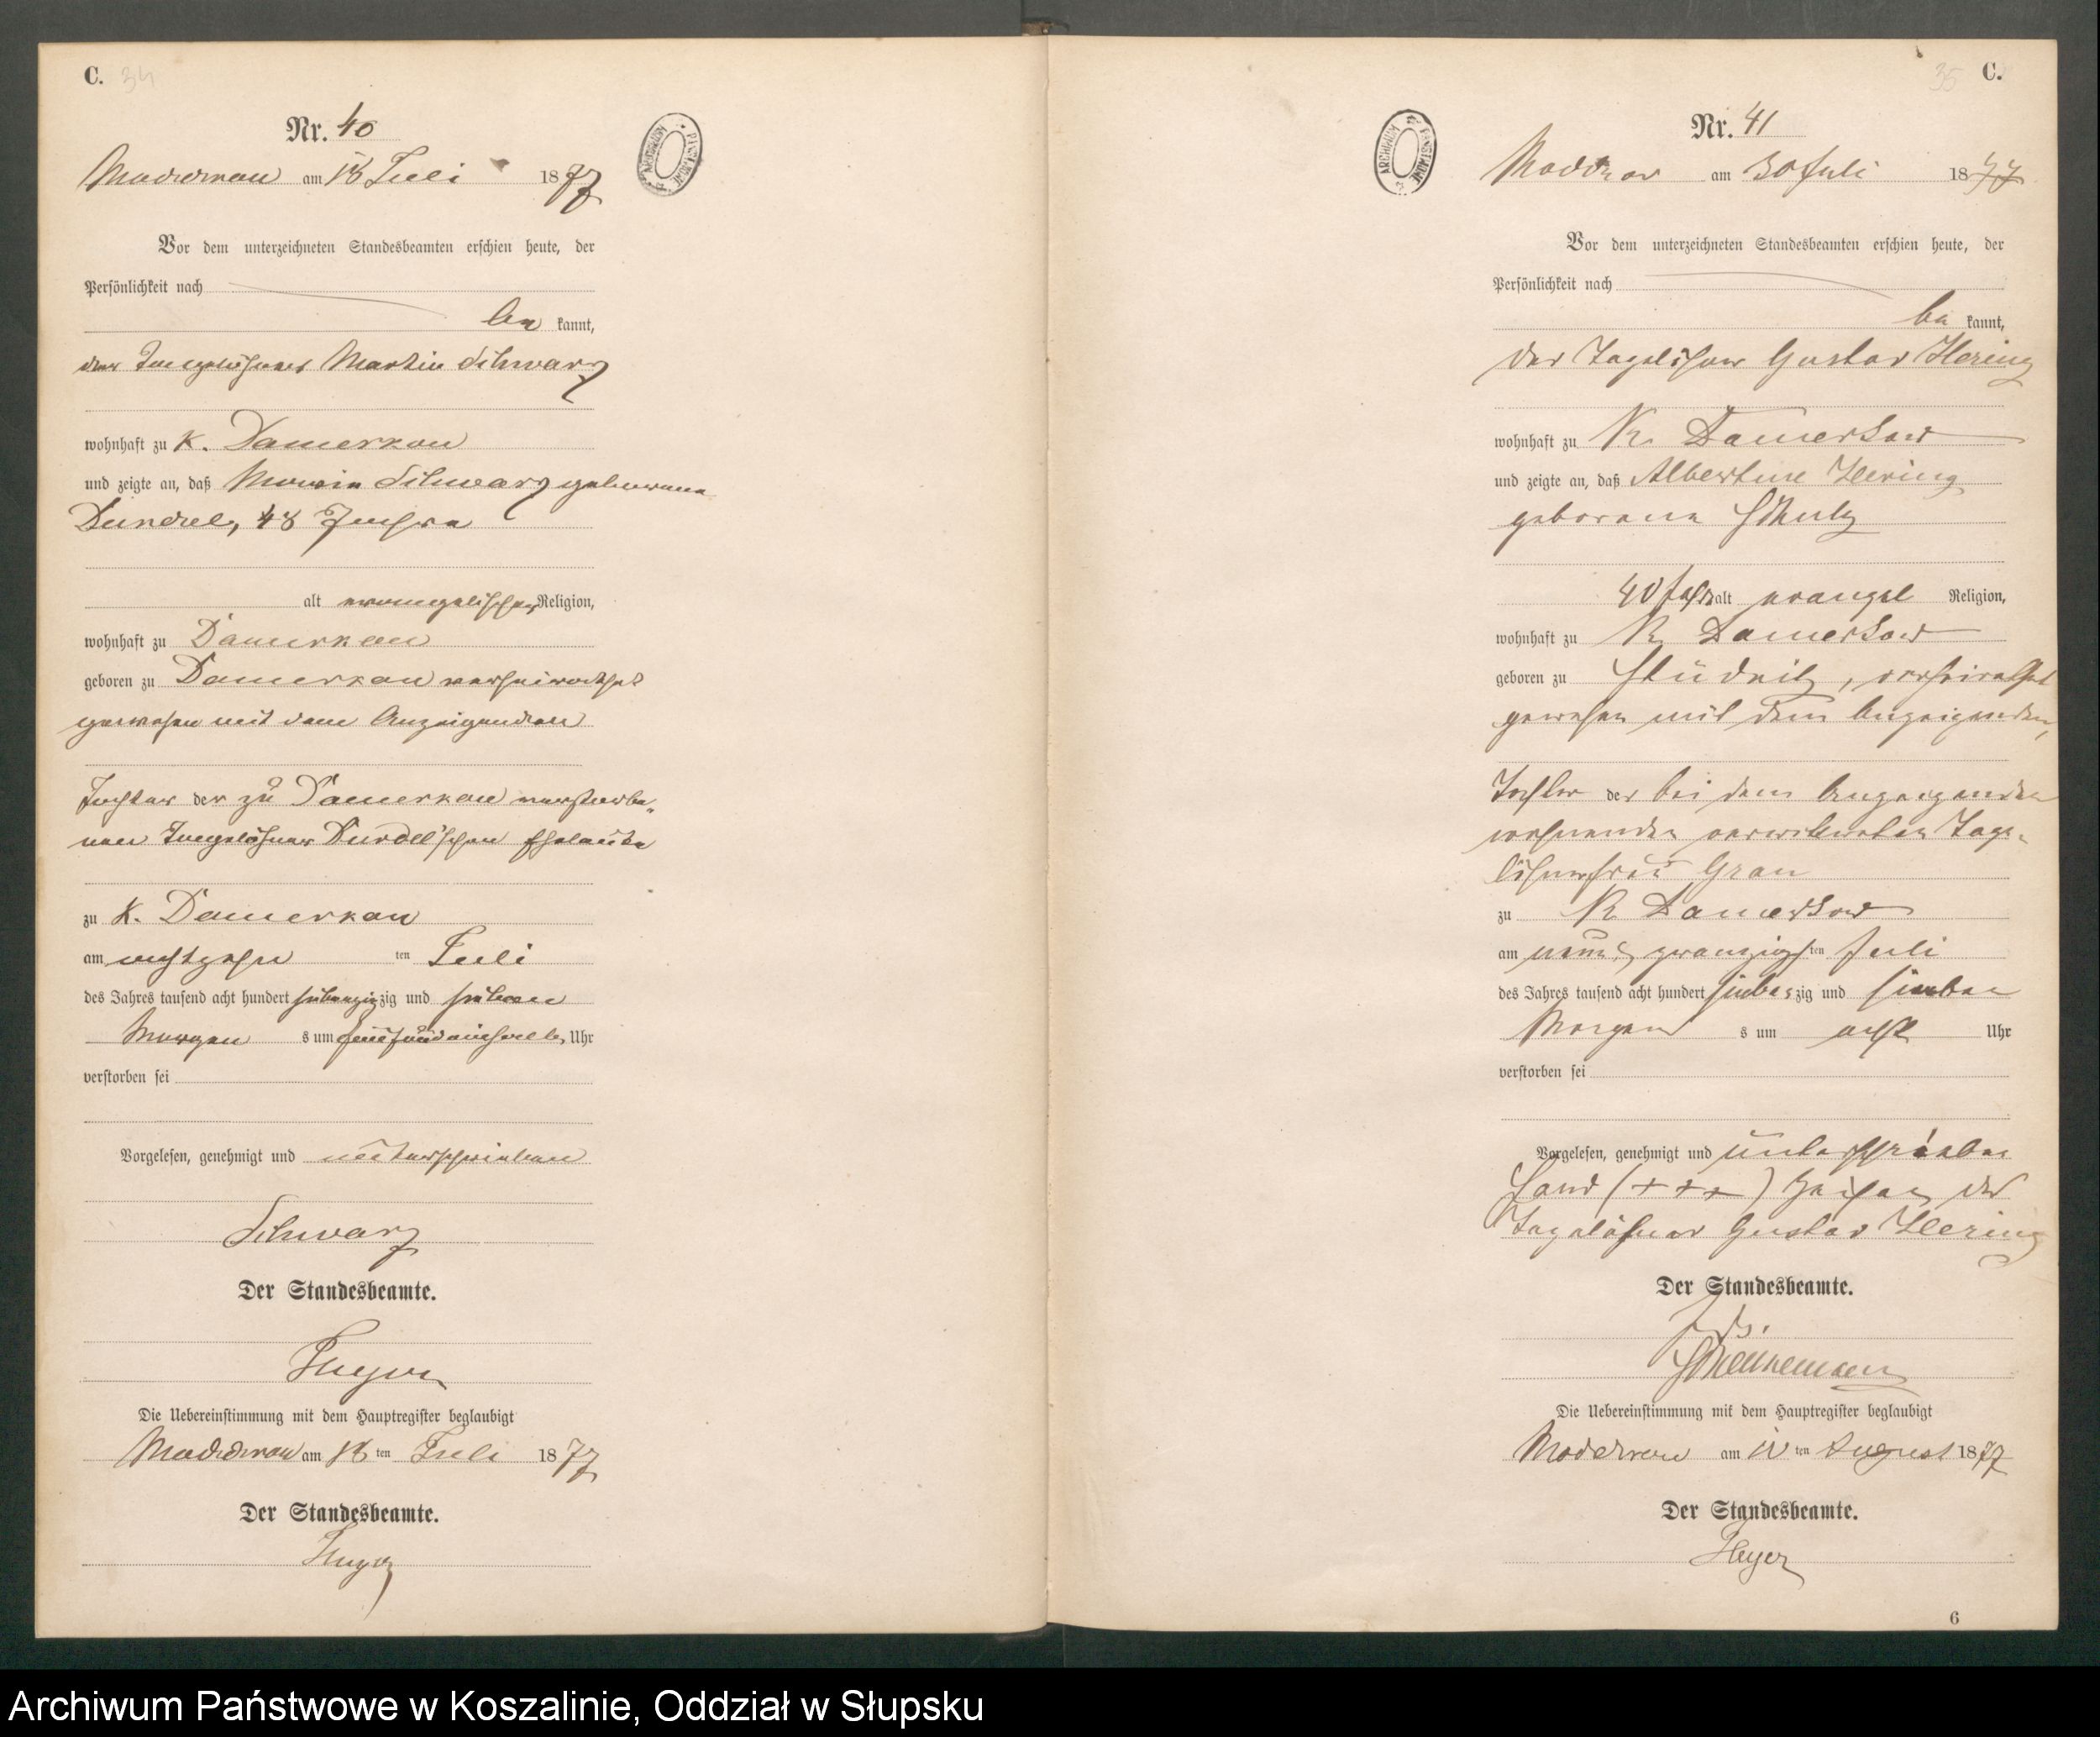 C. 34
Nr. 40
Moddrow am 18 Juli 1877
Vor dem unterzeichneten Standesbeamten erschien heute, der
Persönlichkeit nach
be kannt,
der Tagelöhner Martin Schwarz
wohnhaft zu K. Damerkow
und zeigte an, daß Schwarz geborene
48 Jahre
alt evangelischer Religion,
wohnhaft zu Damerkow
geboren zu Damerkow verheirathet
gewesen mit dem Anzeigenden
Tochter der zu Damerkow verstorbe-
nen Tagelöhner Eheleute
zu K. Damerkow
am achtzehn ten Juli
des Jahres tausend acht hundert siebenzig zig und sieben
Morgen s um Uhr
verstorben sei
Vorgelesen, genehmigt und unterschrieben
Schwarz
Der Standesbeamte.
Heyer
Die Uebereinstimmung mit dem Hauptregister beglaubigt
Moddrow am 18 ten Juli 1877
Der Standesbeamte.
Heyer
35 C.
Nr. 41
Moddrow am 30 Juli 1877
Vor dem unterzeichneten Standesbeamten erschien heute, der
Persönlichkeit nach
be kannt,
der Tagelöhner Gustav Hering
wohnhaft zu K. Damerkow
und zeigte an, daß Albertine Hering
geborene Schulz
40 Jahr alt evangel Religion,
wohnhaft zu K. Damerkow
geboren zu Stüdnitz, verheirathet
gewesen mit dem Anzeigenden,
Tochter der bei dem Anzeigenden
wohnenden verwittweten Tage-
löhnerfrau Grau
zu K Damerkow
am neun & zwanzigsten Juli
des Jahres tausend acht hundert sieben zig und sieben
Morgen s um acht Uhr
verstorben sei
Vorgelesen, genehmigt und unterschrieben
Hand (+++) Zeichen des
Tagelöhner Gustav Hering
Der Standesbeamte.
Die Uebereinstimmung mit dem Hauptregister beglaubigt
Moddrow am ten August 1877
Der Standesbeamte.
Heyer
6
Archiwum Państwowe w Koszalinie, Oddział w Słupsku